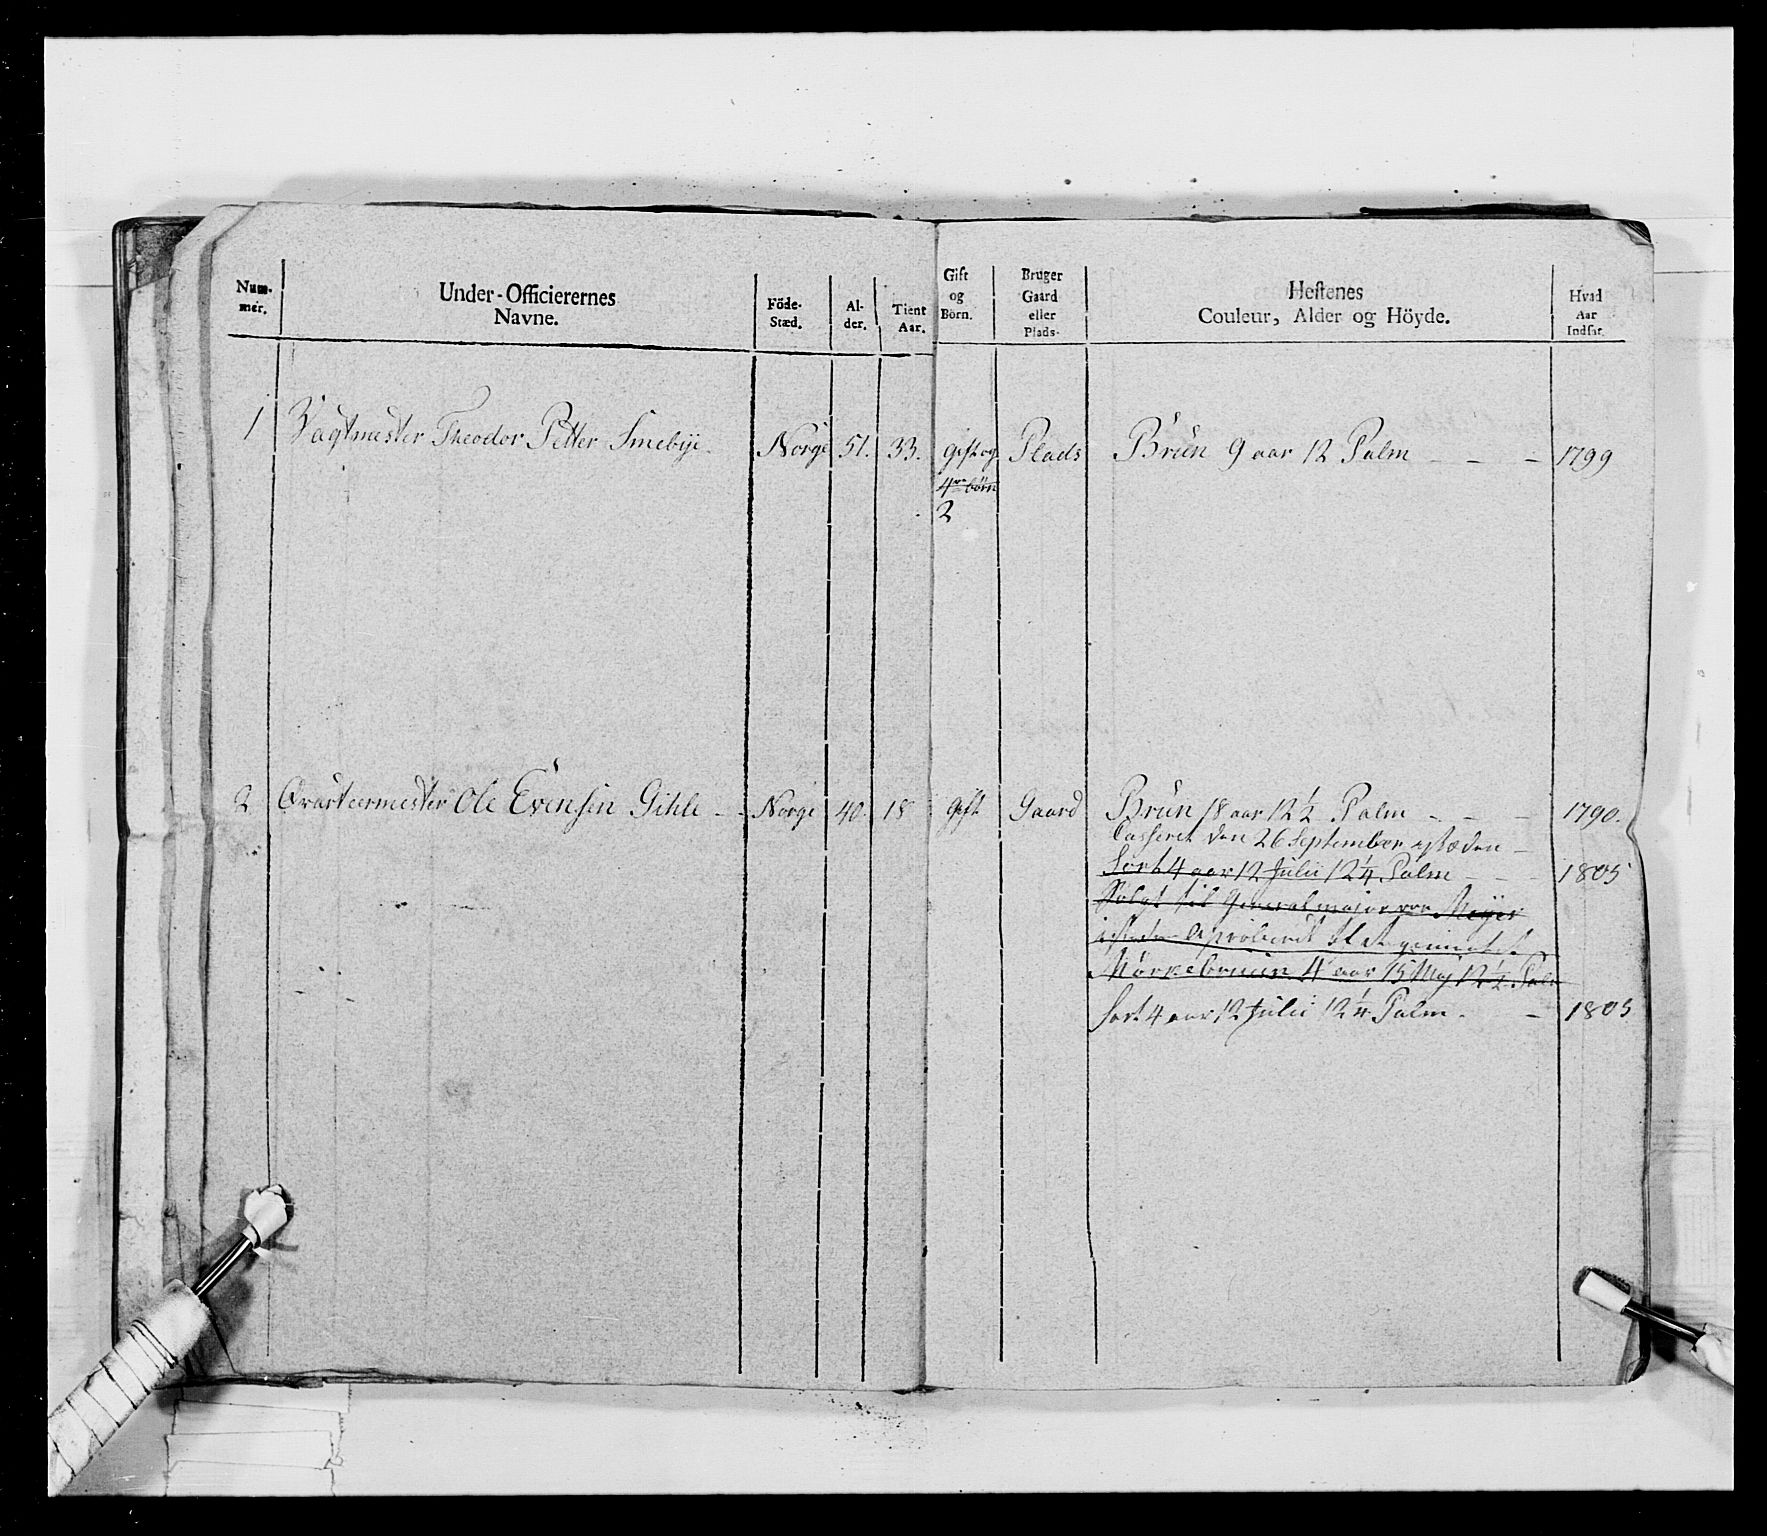 Num-
mer.
Under-Officierernes
Navne.
Föde-
Stæd.
Al-
der.
Tient
Aar.
Gift
og
Börn.
Bruger
Gaard
eller
Plads.
Hestenes
Couleur, Alder og Höyde.
Hvad
Aar
Indsat.
1 Vagtmester Theodor Petter Smebye Norge 51. 33. gift og Plads Brun 9 aar 12 Palm - - - 1799
4re börn
2
2 Qvarteermester Ole Evensen Gihle - - Norge 40. 18 Gift Gaard Brun 18 aar 12½ Palm - - - 1790.
Casseret den 26 September istæden -
Sort 4 aar 12 Julii 12¼ Palm - - - 1805
Solgt til Generalmajor von Meyer
istæden
Mörkebruun 4 aar 15 Maj 12½ Palm
Sort 4 aar 12 Julii 12¼ Palm. - 1805